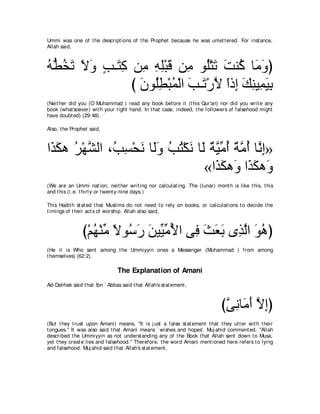 Ummi was one of the descriptions of the Prophet because he was unlettered. For instance,
Allah said,
(وَمَا كُنتَ تَتْلُو مِن قَبْلِهِ مِن كِتَـبٍ وَلاَ تَخُطُّهُ
بِيَمِينِكَ إِذاً لاَّرْتَـبَ الْمُبْطِلُونَ )
(Neither did you (O Muhammad ) read any book before it (this Qur'an) nor did you write any
book (whatsoever) with your right hand. In that case, indeed, the followers of falsehood might
have doubted) (29:48).
Also, the Prophet said,
«إِنَّا أُمَّةٌ أُمِّيَّةٌ لَا نَكْتُبُ وَلَا نَحْسِبُ، الشَّهْرُ هَكَذَا
وَهَكَذَا وَهَكَذَا»
(We are an Ummi nation, neither writing nor calculating. The (lunar) month is like this, this
and this (i.e. thirty or twenty-nine days.)
This Hadith stated that Muslims do not need to rely on books, or calculations to decide the
timings of their acts of worship. Allah also said,
(هُوَ الَّذِى بَعَثَ فِى الأُمِّيِّينَ رَسُولاً مِّنْهُمْ)
(He it is Who sent among the Ummiyyin ones a Messenger (Muhammad ) from among
themselves) (62:2).
The Explanation of Amani
Ad-Dahhak said that Ibn `Abbas said that Allah's statement,
(إِلاَّ أَمَانِىَّ)
(But they trust upon Amani) means, "It is just a false statement that they utter with their
tongues." It was also said that Amani means `wishes and hopes'. Mujahid commented, "Allah
described the Ummiyyin as not understanding any of the Book that Allah sent down to Musa,
yet they create lies and falsehood." Therefore, the word Amani mentioned here refers to lying
and falsehood. Mujahid said that Allah's statement,